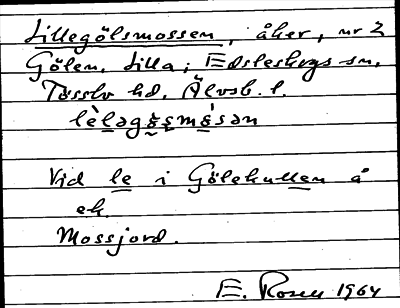 Lillegölsmossen, åker, nr 2
Gölen. Lilla; Edsleskogs sn,
Tössbo hd. Älvsb. l.
Vid le i Gölekullen å
ek.
Mossjord.
E. Rosen 1964